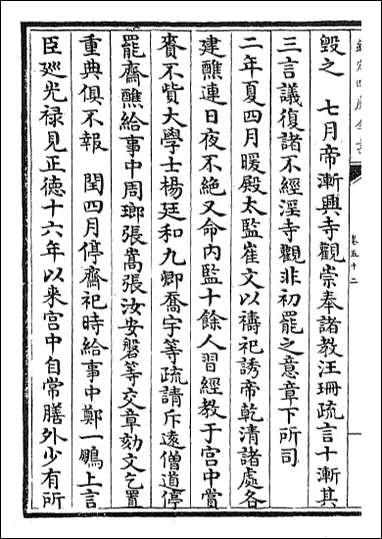 欽定四庫全書
卷五十二
毀之　七月帝漸興寺觀崇奉諸教汪珊疏言十漸其
三言議復諸不經淫寺觀非初罷之意章下所司
二年夏四月暖殿太監崔文以禱祀誘帝乾清諸處各
建醮連日夜不絶又命内監十餘人習經教于宫中賞
賚不貲大學士楊廷和九卿喬宇等疏請斥遠僧道停
罷齋醮給事中周瑯張嵩張汝安磐等交章劾文乞置
重典俱不報　閏四月停齋祀時給事中鄭一鵬上言
臣廵光禄見正徳十六年以来宫中自常膳外少有所